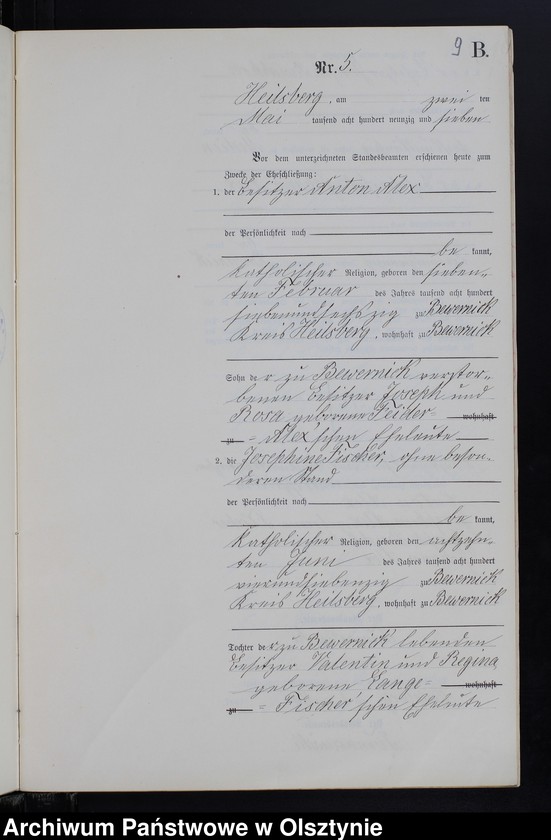 9 B.
Nr. 5.
Heilsberg, am zwei ten
Mai tausend acht hundert neunzig und sieben
Vor dem unterzeichneten Standesbeamten erschienen heute zum
Zwecke der Eheschließung:
1. der Besitzer Anton Alex
der Persönlichkeit nach
be kannt,
katholischer Religion, geboren den sieben-
ten Februar des Jahres tausend acht hundert
siebenundsechszig zu Bewernick
Kreis Heilsberg, wohnhaft zu Bewernick
Sohn der zu Bewernick verstor-
benen Besitzer Joseph und
Rosa geborene Feider- wohnhaft
zu = Alex'schen Eheleute
2. die Josephine Fischer, ohne beson-
deren Stand
der Persönlichkeit nach
be kannt,
katholischer Religion, geboren den achtzehn-
ten Juni des Jahres tausend acht hundert
vierundsiebenzig zu Bewernick
Kreis Heilsberg, wohnhaft zu Bewernick
Tochter der zu Bewernick lebenden
Besitzer Valentin und Regina
geborene Lange= wohnhaft
zu = Fischer'schen Eheleute
Archiwum Państwowe w Olsztynie